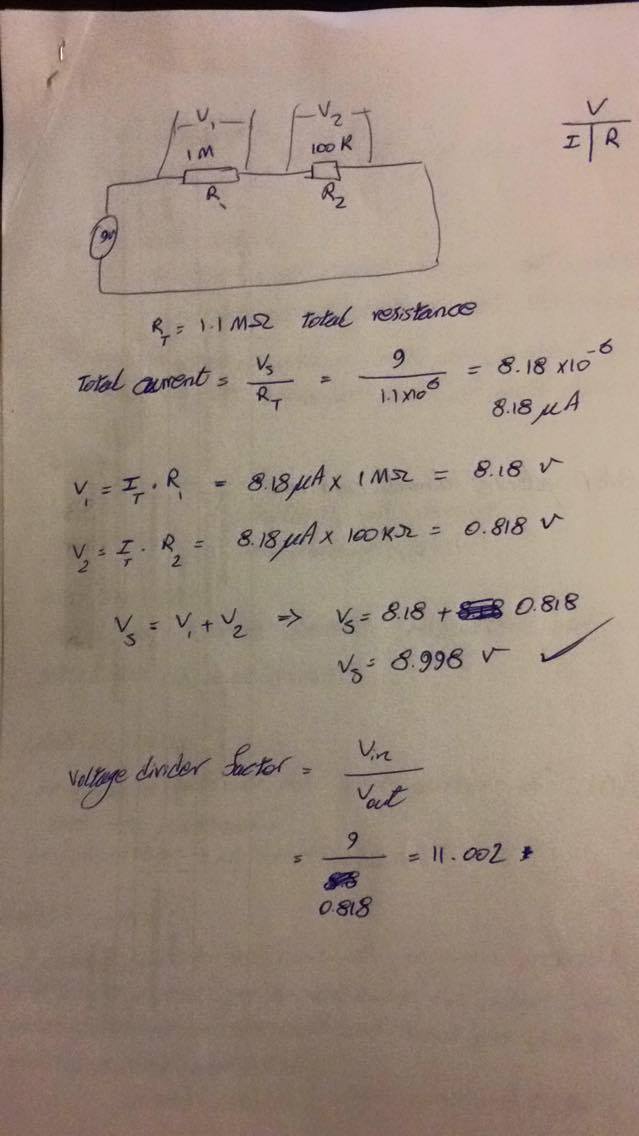 V₁ V₂
1M 100K
R₁ R₂
9v
V
I | R
R_T = 1.1 MΩ total resistance
Total current = V_s / R_T = 9 / 1.1×10⁶ = 8.18 ×10⁻⁶
8.18 μA
V₁ = I_T · R₁ = 8.18 μA × 1 MΩ = 8.18 v
V₂ = I_T · R₂ = 8.18 μA × 100KΩ = 0.818 v
V_s = V₁ + V₂ => V_s = 8.18 + 0.818
V_s = 8.998 v ✓
Voltage divider factor = V_in / V_out
= 9 / 0.818 = 11.002